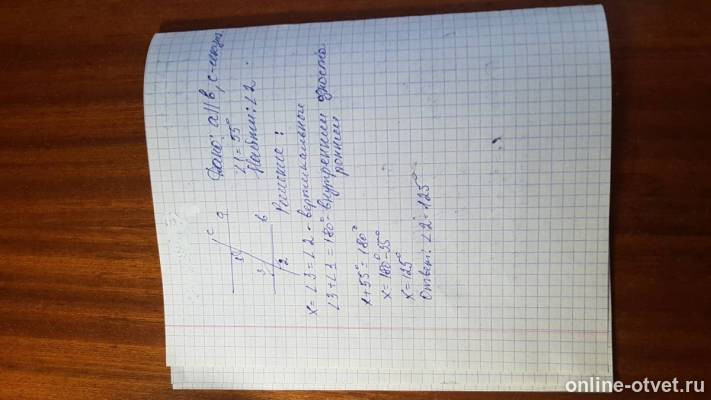 Дано: a||b, c-секущ.
∠1=55°
Найти: ∠2
c
a
1
3
b
2
Решение:
x = ∠3 = ∠2 - вертикальные
∠3+∠1 = 180° - внутренние одностo
ронние
x+55°=180°
x=180°-55°
x=125°
Ответ: ∠2=125°
online-otvet.ru